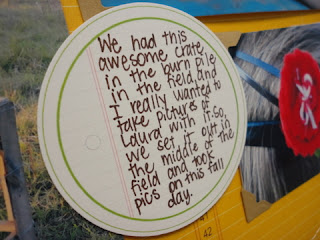 We had this
awesome crate
in the burn pile
in the field and
I really wanted to
take pictures of
Laura with it. So,
we set it out in
the middle of the
field and took
pics on this fall
day.
42